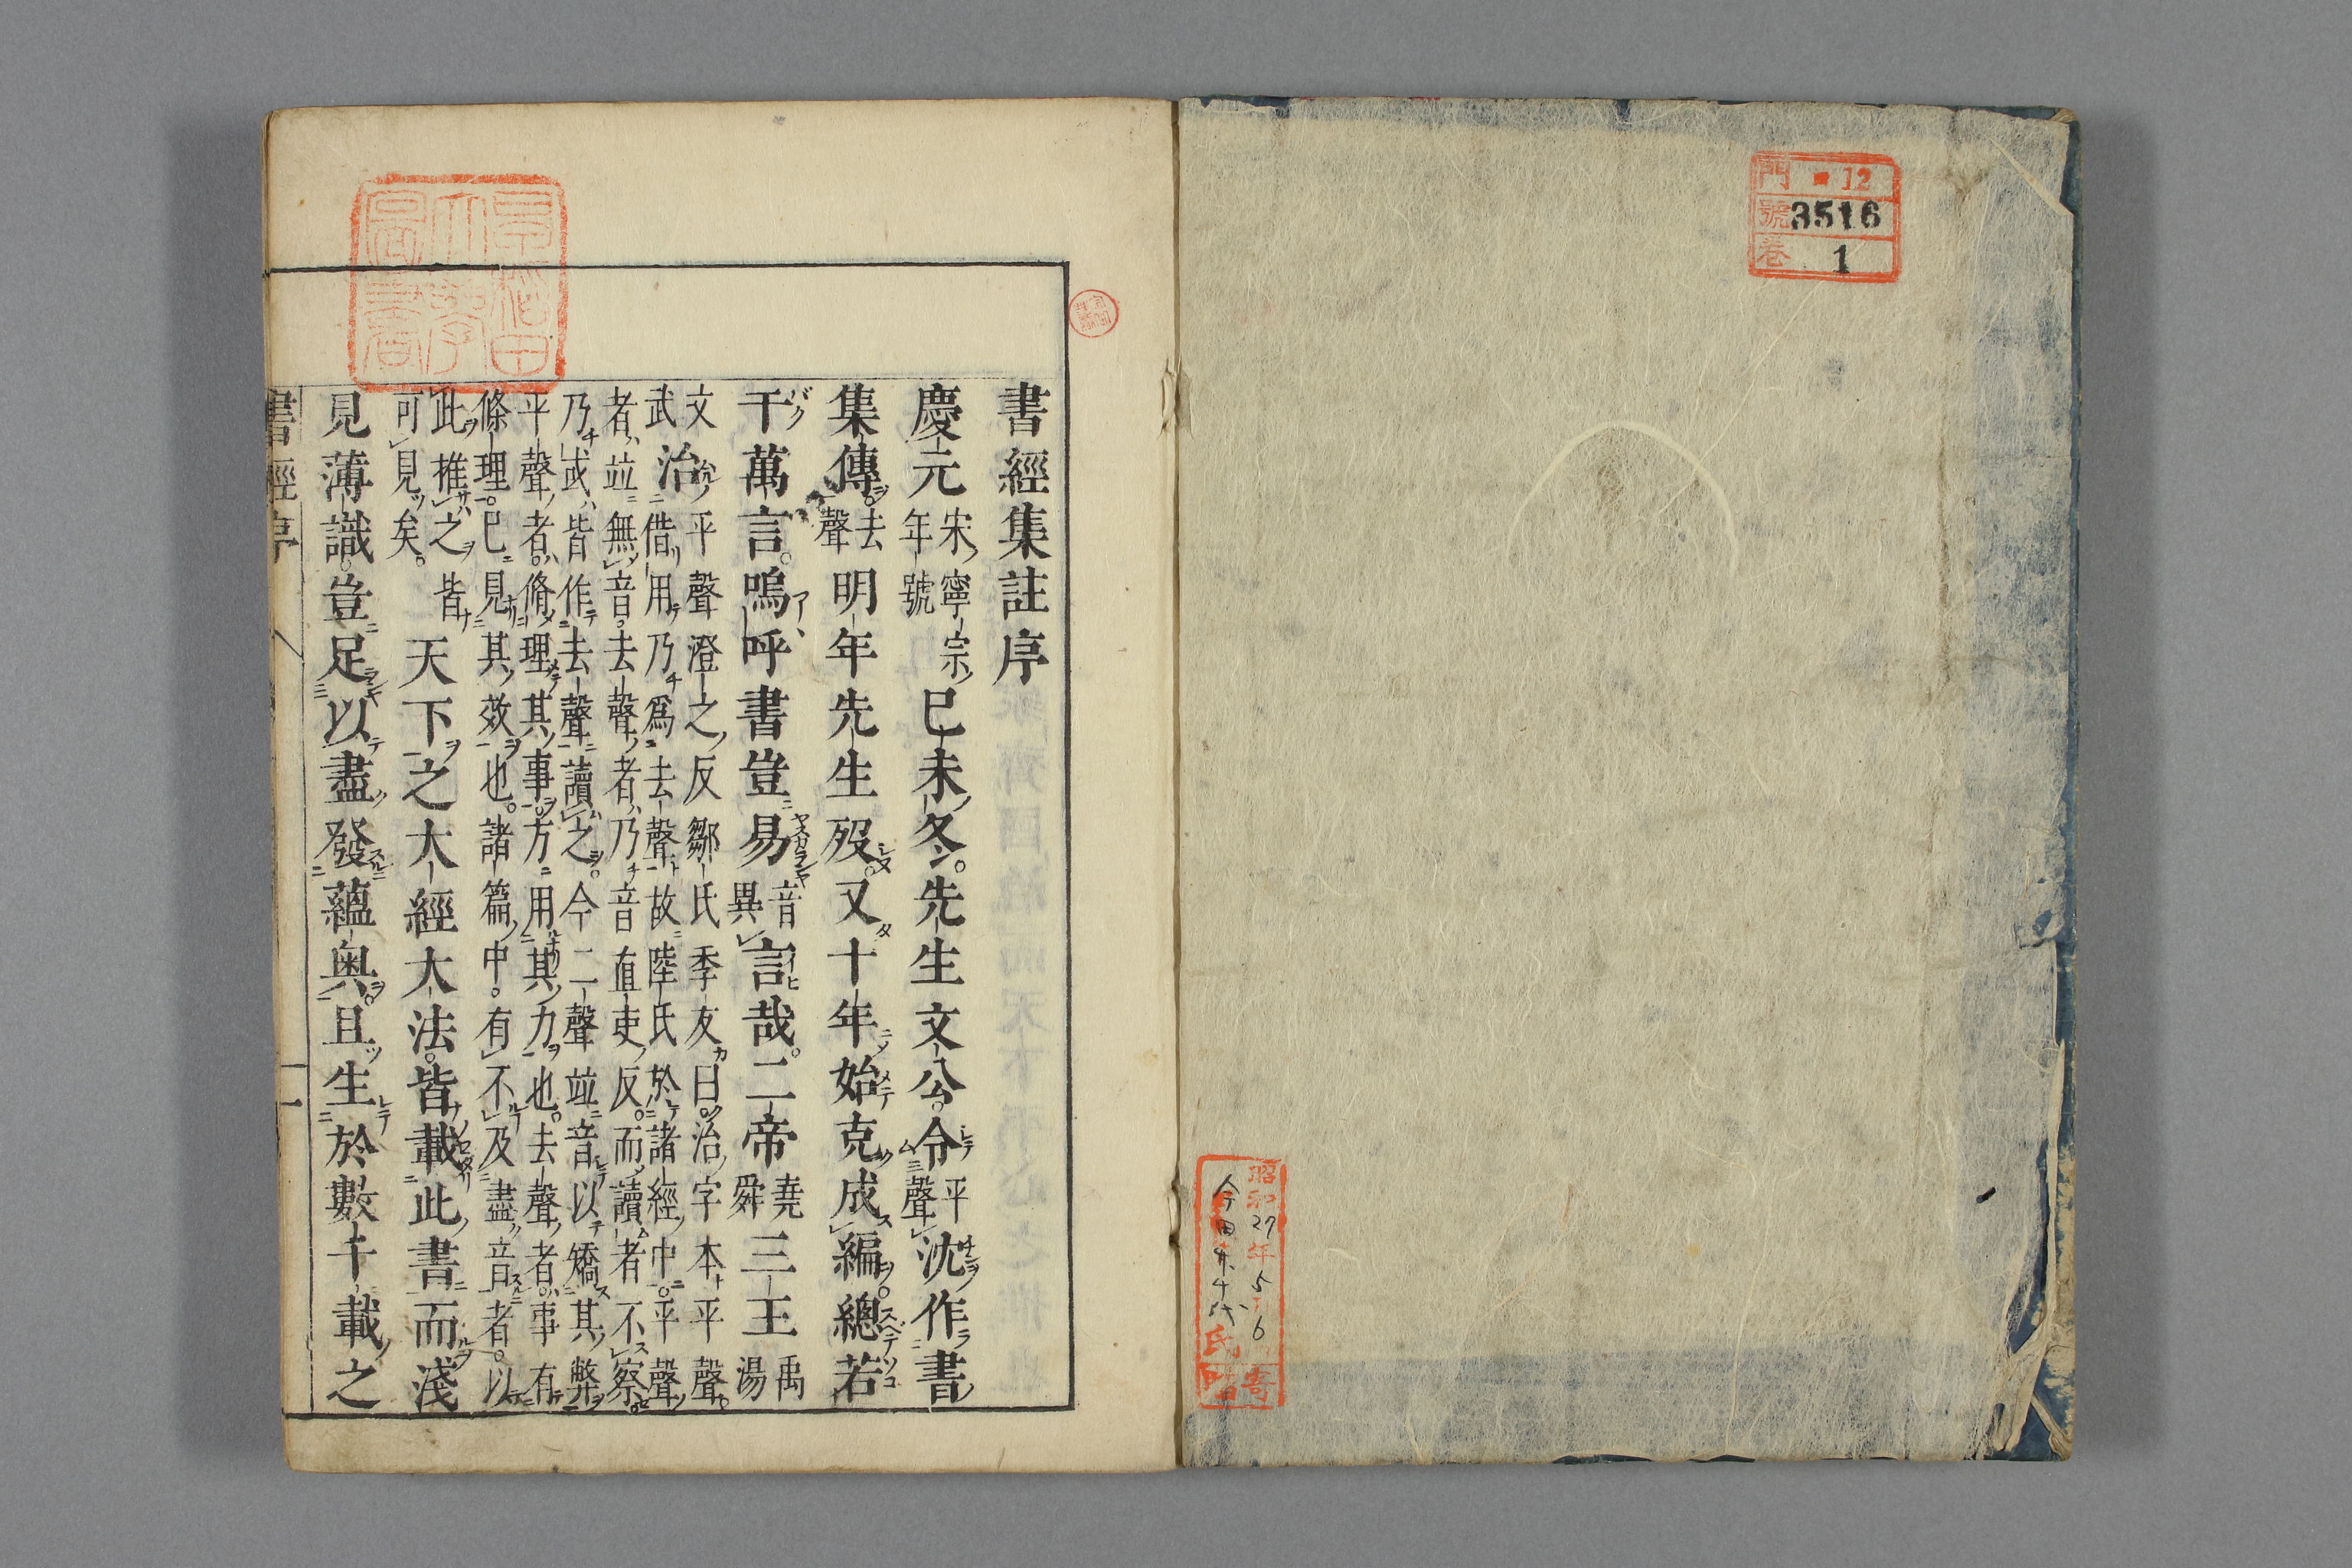 門 12
號 3516
卷 1
昭和27年5月6
今田
氏寄贈
書經集註序
慶元宋寧宗年號巳未冬。先生文公。令平聲沈作書
集傳。去聲明年先生歿。又十年始克成編。總若
干萬言。嗚呼書豈易音異言哉。二帝堯舜三王禹湯
文武治平聲澄之反鄒氏季友曰。治字本平聲。
借用乃爲去聲故陸氏於諸經中。平聲
者竝無音。去聲者乃音直吏反。而讀者不察。
乃或皆作去聲讀之。今二聲竝音以矯其弊
平聲者。脩理其事。方用其力也。去聲者。事有
條理。已見其效也。諸篇中。有不及盡音者。以
此推之皆
可見矣。
天下之大經大法。皆載此書而淺
見薄識。豈足以盡發蘊奧。且生於數千載之
書經序 一
早稻田大學圖書